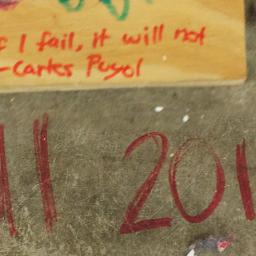 f I fail, it will not
-Carles Puyol
11 201